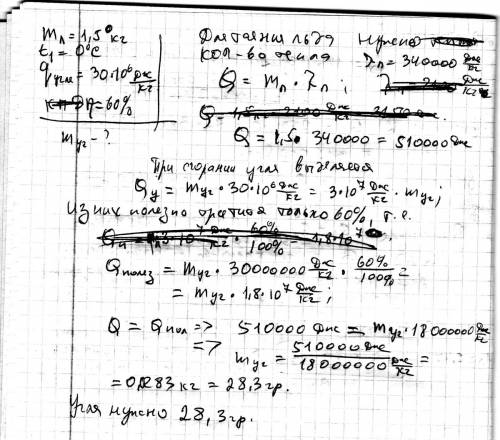 mл = 1,5 кг
t1 = 0°C
qугля = 30·10⁶ Дж/кг
η = 60%
mуг - ?
Для таяния льда нужно
кол-во тепла
λл = 340000 Дж/кг
Q = mл · λл ;
Q = 1,5 · 340000 = 510000 Дж
При сгорании угля выделяется
Qу = mуг · 30·10⁶ Дж/кг = 3·10⁷ Дж/кг · mуг ;
Из них полезно тратится только 60%, т.е.
Qполез = mуг · 30000000 Дж/кг · 60%/100% =
= mуг · 1,8·10⁷ Дж/кг ;
Q = Qпол => 510000 Дж = mуг · 18000000 Дж/кг
=> mуг = 510000 Дж / 18000000 Дж/кг =
= 0,0283 кг = 28,3 гр.
Угля нужно 28,3 гр.